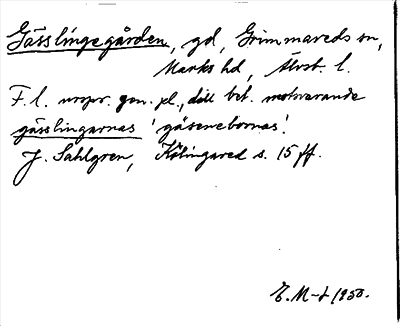 Gässlingegården, gd, Grimmareds sn,
Marks hd, Älvsb. l.
F.l. urspr. gen. pl., till bet. motsvarande
gässlingarnas 'gäsenebornas'.
J. Sahlgren, Kölingared s. 15 ff.
E. M-t 1950.